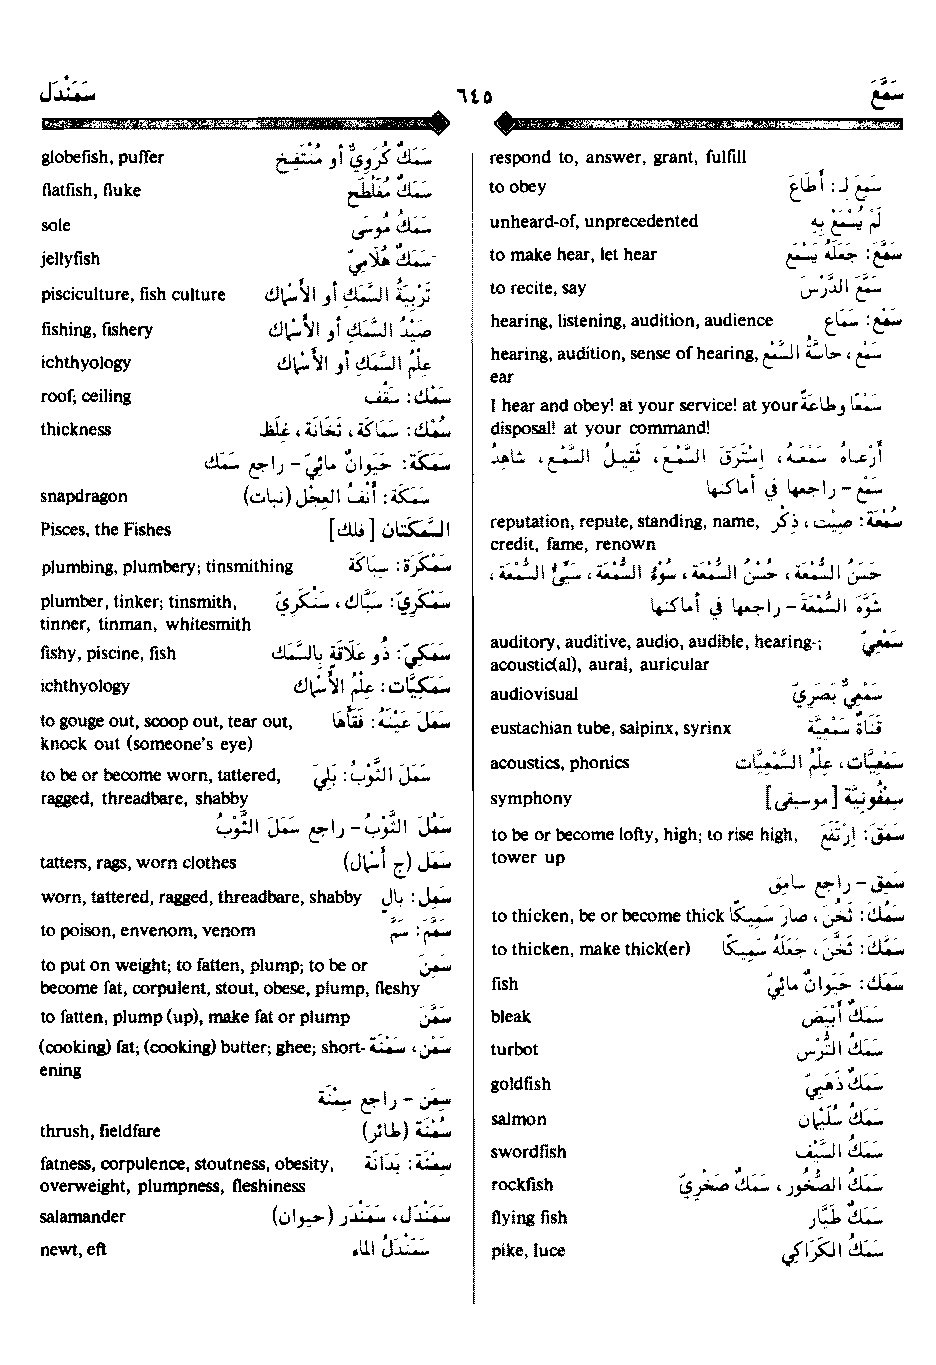 سَمَّعَ ٦٤٥ سَمَنْدَل
respond to, answer, grant, fulfill
سَمِعَ لـِ: أَطَاعَ to obey
لَمْ يُسْمَعْ بِهِ unheard-of, unprecedented
سَمَّعَ: جَعَلَهُ يَسْمَعُ to make hear, let hear
سَمَّعَ الدَّرْسَ to recite, say
سَمْع: سَمَاع hearing, listening, audition, audience
سَمْع، حَاسَّةُ السَّمْع hearing, audition, sense of hearing,
ear
سَمْعًا وطاعةً I hear and obey! at your service! at your
disposal! at your command!
أَرْعَاهُ سَمْعَهُ، اِسْتَرَقَ السَّمْعَ، ثَقِيلُ السَّمْعِ، شاهِدُ
سَمْعٍ – راجعها في أماكنها
سُمْعَة: صِيْت، ذِكْر reputation, repute, standing, name,
credit, fame, renown
حَسَنُ السُّمْعَة، حُسْنُ السُّمْعَة، سُوْءُ السُّمْعَة، سَيِّئُ السُّمْعَة،
شَوَّهَ السُّمْعَةَ – راجعها في أماكنها
سَمْعِيّ auditory, auditive, audio, audible, hearing-;
acoustic(al), aural, auricular
سَمْعِيٌّ بَصَرِيّ audiovisual
قَنَاةٌ سَمْعِيَّة eustachian tube, salpinx, syrinx
سَمْعِيَّات، عِلْمُ السَّمْعِيَّات acoustics, phonics
سِمْفُونِيَّة [موسيقى] symphony
سَمَقَ: اِرْتَفَعَ to be or become lofty, high; to rise high,
tower up
سَمِق – راجع سامِق
سَمُكَ: ثَخُنَ، صارَ سَمِيكًا to thicken, be or become thick
سَمَّكَ: ثَخَّنَ، جَعَلَهُ سَمِيكًا to thicken, make thick(er)
سَمَك: حَيَوَانٌ مَائِيّ fish
سَمَكٌ أَبْيَض bleak
سَمَكُ التُّرْس turbot
سَمَكٌ ذَهَبِيّ goldfish
سَمَكُ سُلَيْمَان salmon
سَمَكُ السَّيْف swordfish
سَمَكُ الصُّخُور، سَمَكٌ صَخْرِيّ rockfish
سَمَكٌ طَيَّار flying fish
سَمَكُ الكَرَاكِي pike, luce
سَمَكٌ كُرَوِيٌّ أو مُنْتَفِخ globefish, puffer
سَمَكٌ مُفَلْطَح flatfish, fluke
سَمَكُ مُوسَى sole
سَمَكٌ هُلَامِيّ jellyfish
تَرْبِيَةُ السَّمَكِ أو الأَسْمَاك pisciculture, fish culture
صَيْدُ السَّمَكِ أو الأَسْمَاك fishing, fishery
عِلْمُ السَّمَكِ أو الأَسْمَاك ichthyology
سَمْك: سَقْف roof; ceiling
سُمْك: سَمَاكَة، ثَخَانَة، غِلَظ thickness
سَمَكَة: حَيَوانٌ مائِيّ – راجع سَمَك
سَمَكَة: أَنْفُ العِجْل (نبات) snapdragon
السَّمَكَتَان [فلك] Pisces, the Fishes
سَمْكَرَة: سِبَاكَة plumbing, plumbery; tinsmithing
سَمْكَرِيّ: سَبَّاك، سَنْكَرِيّ plumber, tinker; tinsmith,
tinner, tinman, whitesmith
سَمَكِيّ: ذو عَلَاقَةٍ بِالسَّمَك fishy, piscine, fish
سَمَكِيَّات: عِلْمُ الأَسْمَاك ichthyology
سَمَلَ عَيْنَهُ: فَقَأَها to gouge out, scoop out, tear out,
knock out (someone's eye)
سَمَلَ الثَّوْبُ: بَلِيَ to be or become worn, tattered,
ragged, threadbare, shabby
سَمُلَ الثَّوْبُ – راجع سَمَلَ الثَّوْبُ
سَمَل (ج أَسْمَال) tatters, rags, worn clothes
سَمِل: بَالٍ worn, tattered, ragged, threadbare, shabby
سَمَّمَ: سَمَّ to poison, envenom, venom
سَمِنَ to put on weight; to fatten, plump; to be or
become fat, corpulent, stout, obese, plump, fleshy
سَمَّنَ to fatten, plump (up), make fat or plump
سَمْن، سَمْنَة (cooking) fat; (cooking) butter; ghee; short-
ening
سِمَن – راجع سِمْنَة
سُمْنَة (طائر) thrush, fieldfare
سِمْنَة: بَدَانَة fatness, corpulence, stoutness, obesity,
overweight, plumpness, fleshiness
سَمَنْدَل، سَمَنْدَر (حيوان) salamander
سَمَنْدَلُ الماء newt, eft